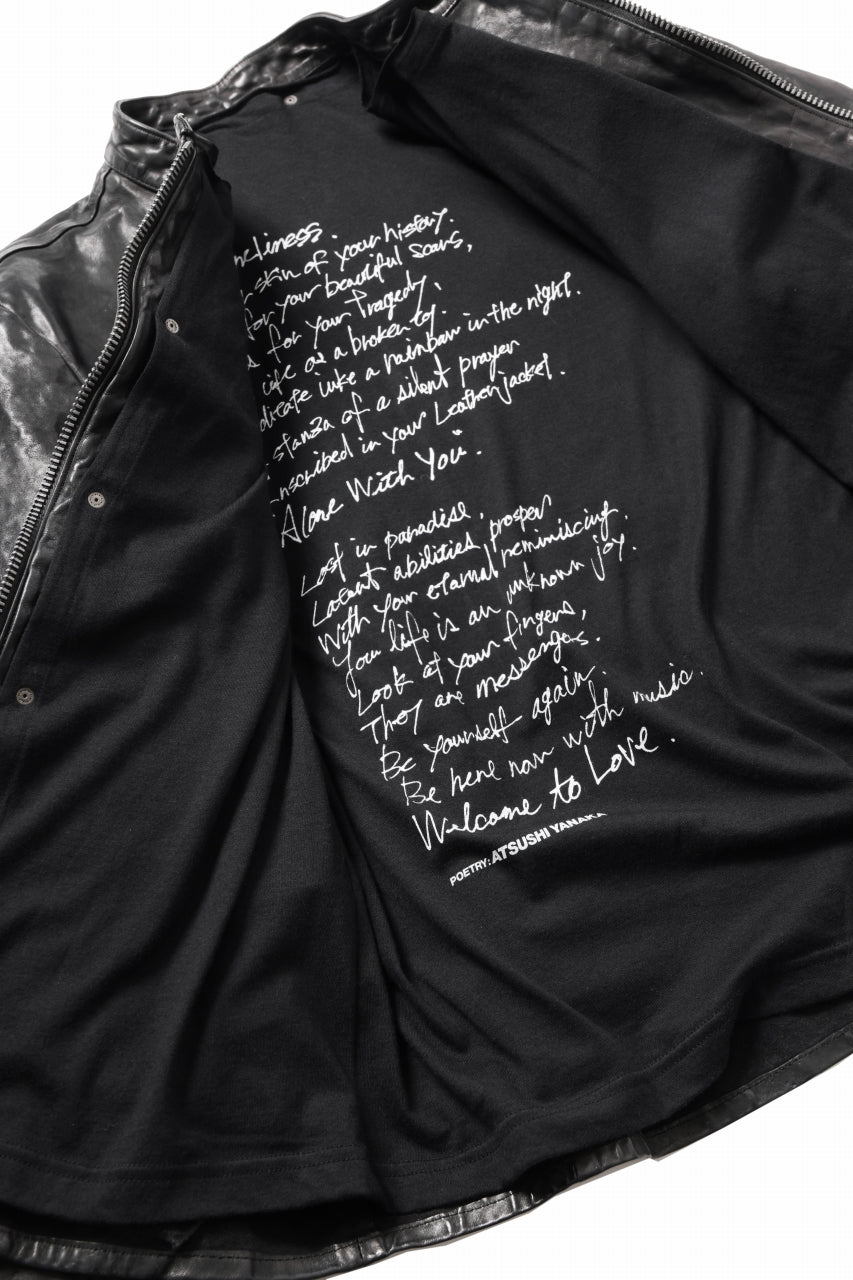 neliness.
skin of your history.
for your beautiful scars,
s for your Tragedy,
as a broken toy.
like a rainbow in the night.
stanza of a silent prayer
Inscribed in your Leather jacket.
"Alone With You".
Lost in paradise,
Latent abilities prosper
With your eternal reminiscing.
Your life is an unknown joy.
Look at your fingers,
They are messengers.
Be yourself again.
Be here now with music.
Welcome to Love.
POETRY: ATSUSHI YANAKA